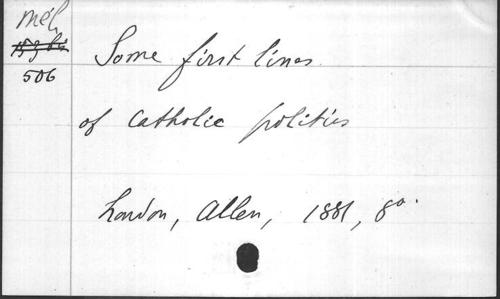 mél
506
Some first lines
of catholic politics
London, Allen, 1881, 8°.